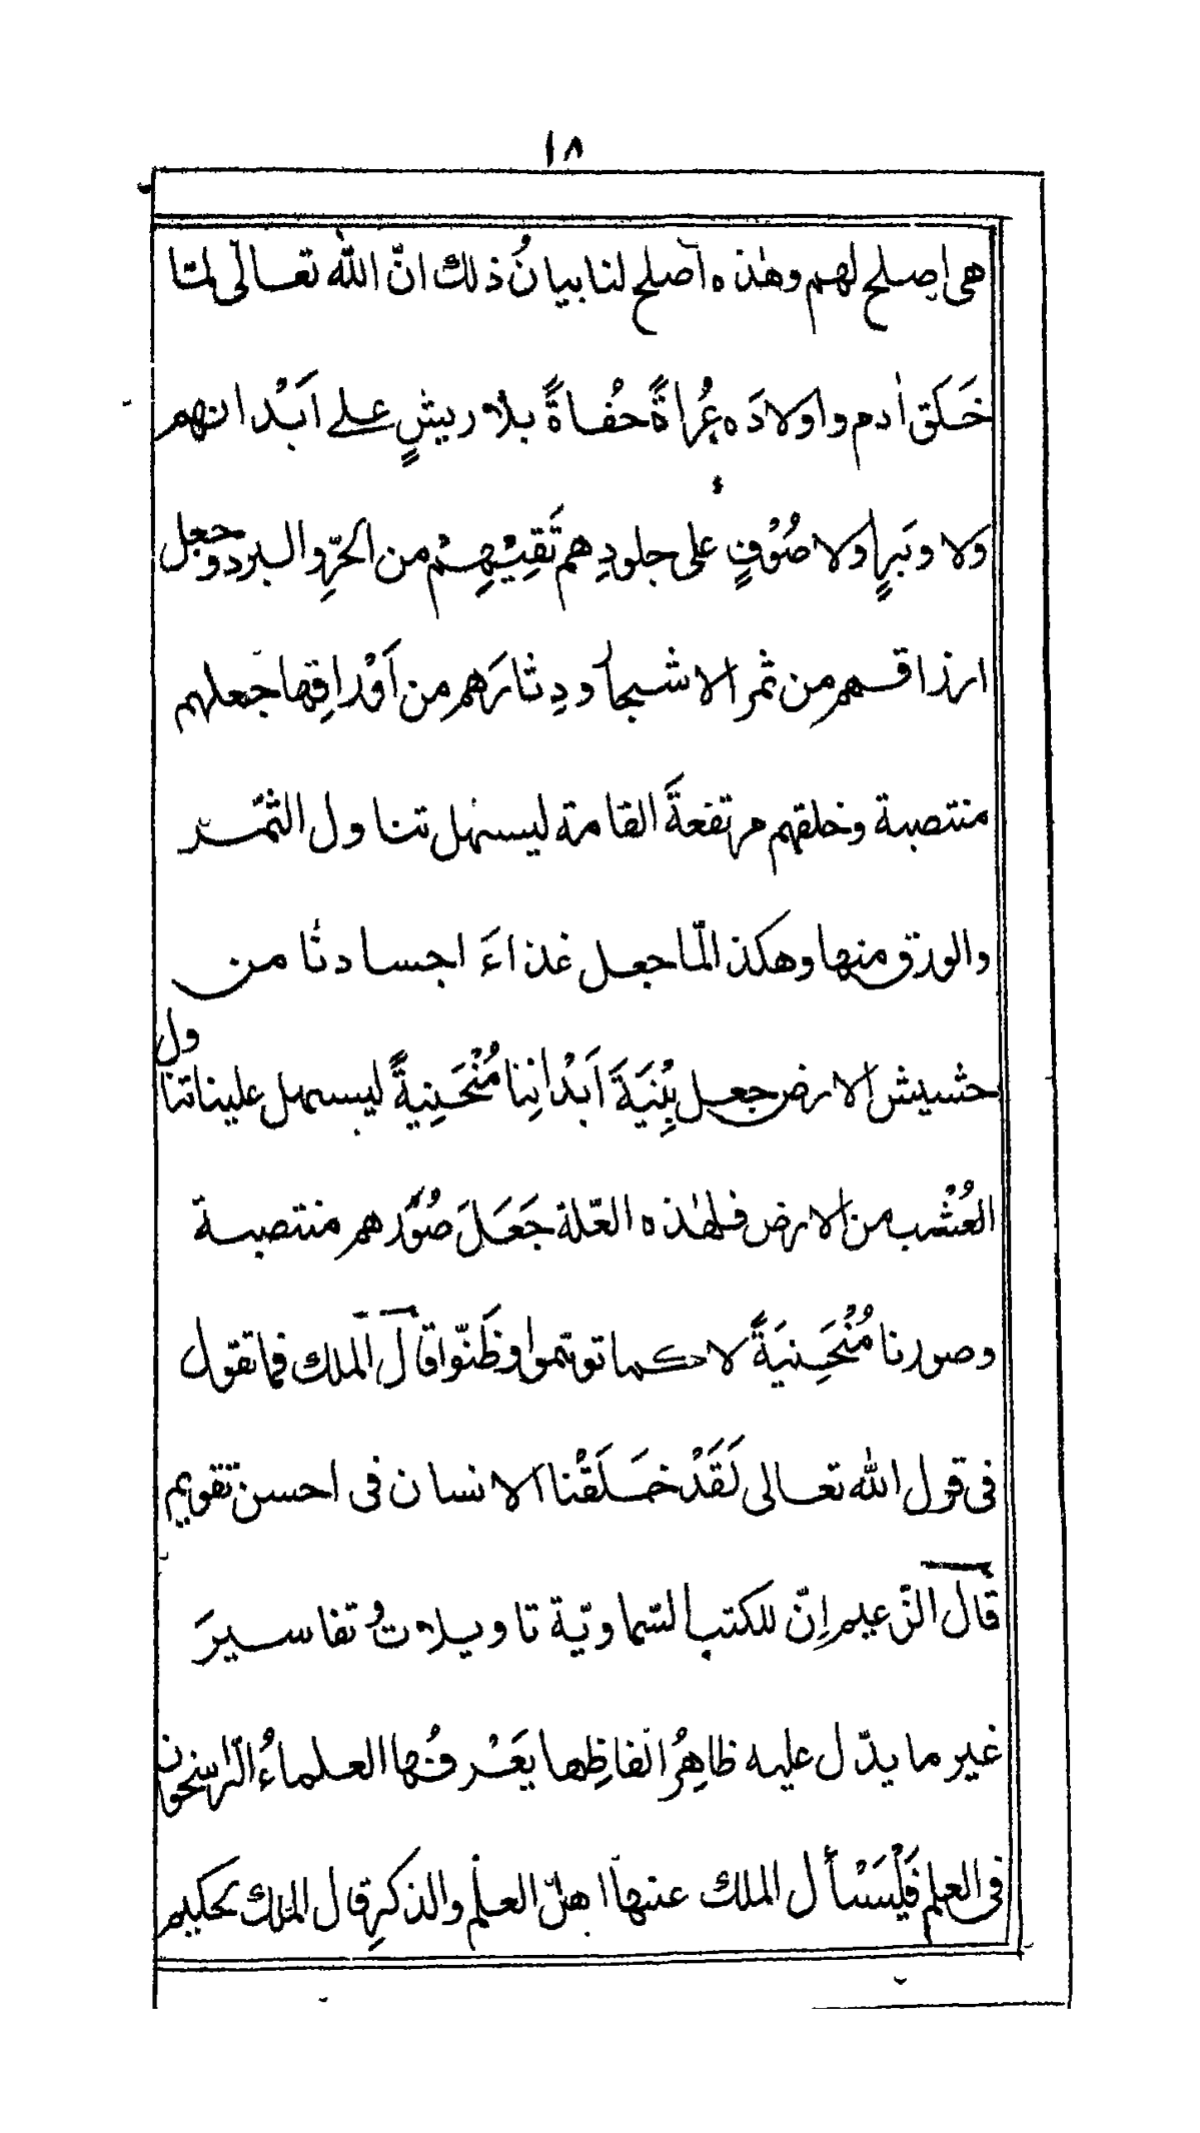 ١٨
هى اصلح لهم وهٰذه اصلح لنا بيانُ ذلك انّ الله تعالٰى لمّا
خَلَق اٰدم واولادَه عُراةً حُفاةً بلا ريشٍ علے اَبْدانهم
ولا وبَرٍ ولا صُوْفٍ على جلودِهم تَقِيْهِمْ من الحرِّ والبرد وجعل
ارزاقهم من ثمر الاشجار ودِثارَهم من اَوْراقِها جعلهم
منتصبة وخلقهم مرتفعةَ القامة ليسهل تناول الثمّر
والورق منها وهكذا لمّا جعل غذاءَ اجسادنا من
حشيش الارض جعل بِنْيَةَ اَبْدانِنا مُنْحَنِيةً ليسهل علينا تناول
العُشْب من الارض فلهٰذه العّلة جَعَلَ صُوَرهم منتصبة
وصورنا مُنْحَنِيَةً لا كما توهموا وظَنّوا قال الملك فما تقول
فى قول الله تعالى لَقَدْ خَلَقْنا الانسان فى احسن تقويم
قال الزّعيم اِنّ للكتب السّماويّة تاويلاتُ تفاسيرَ
غير ما يدّل عليه ظاهِرُ الفاظِها يَعْرفُها العلماءُ الرّاسخون
فى العلم فَلْيَسْأل الملك عنها اهل العلْم والذكرِ قال الملك لحكيم